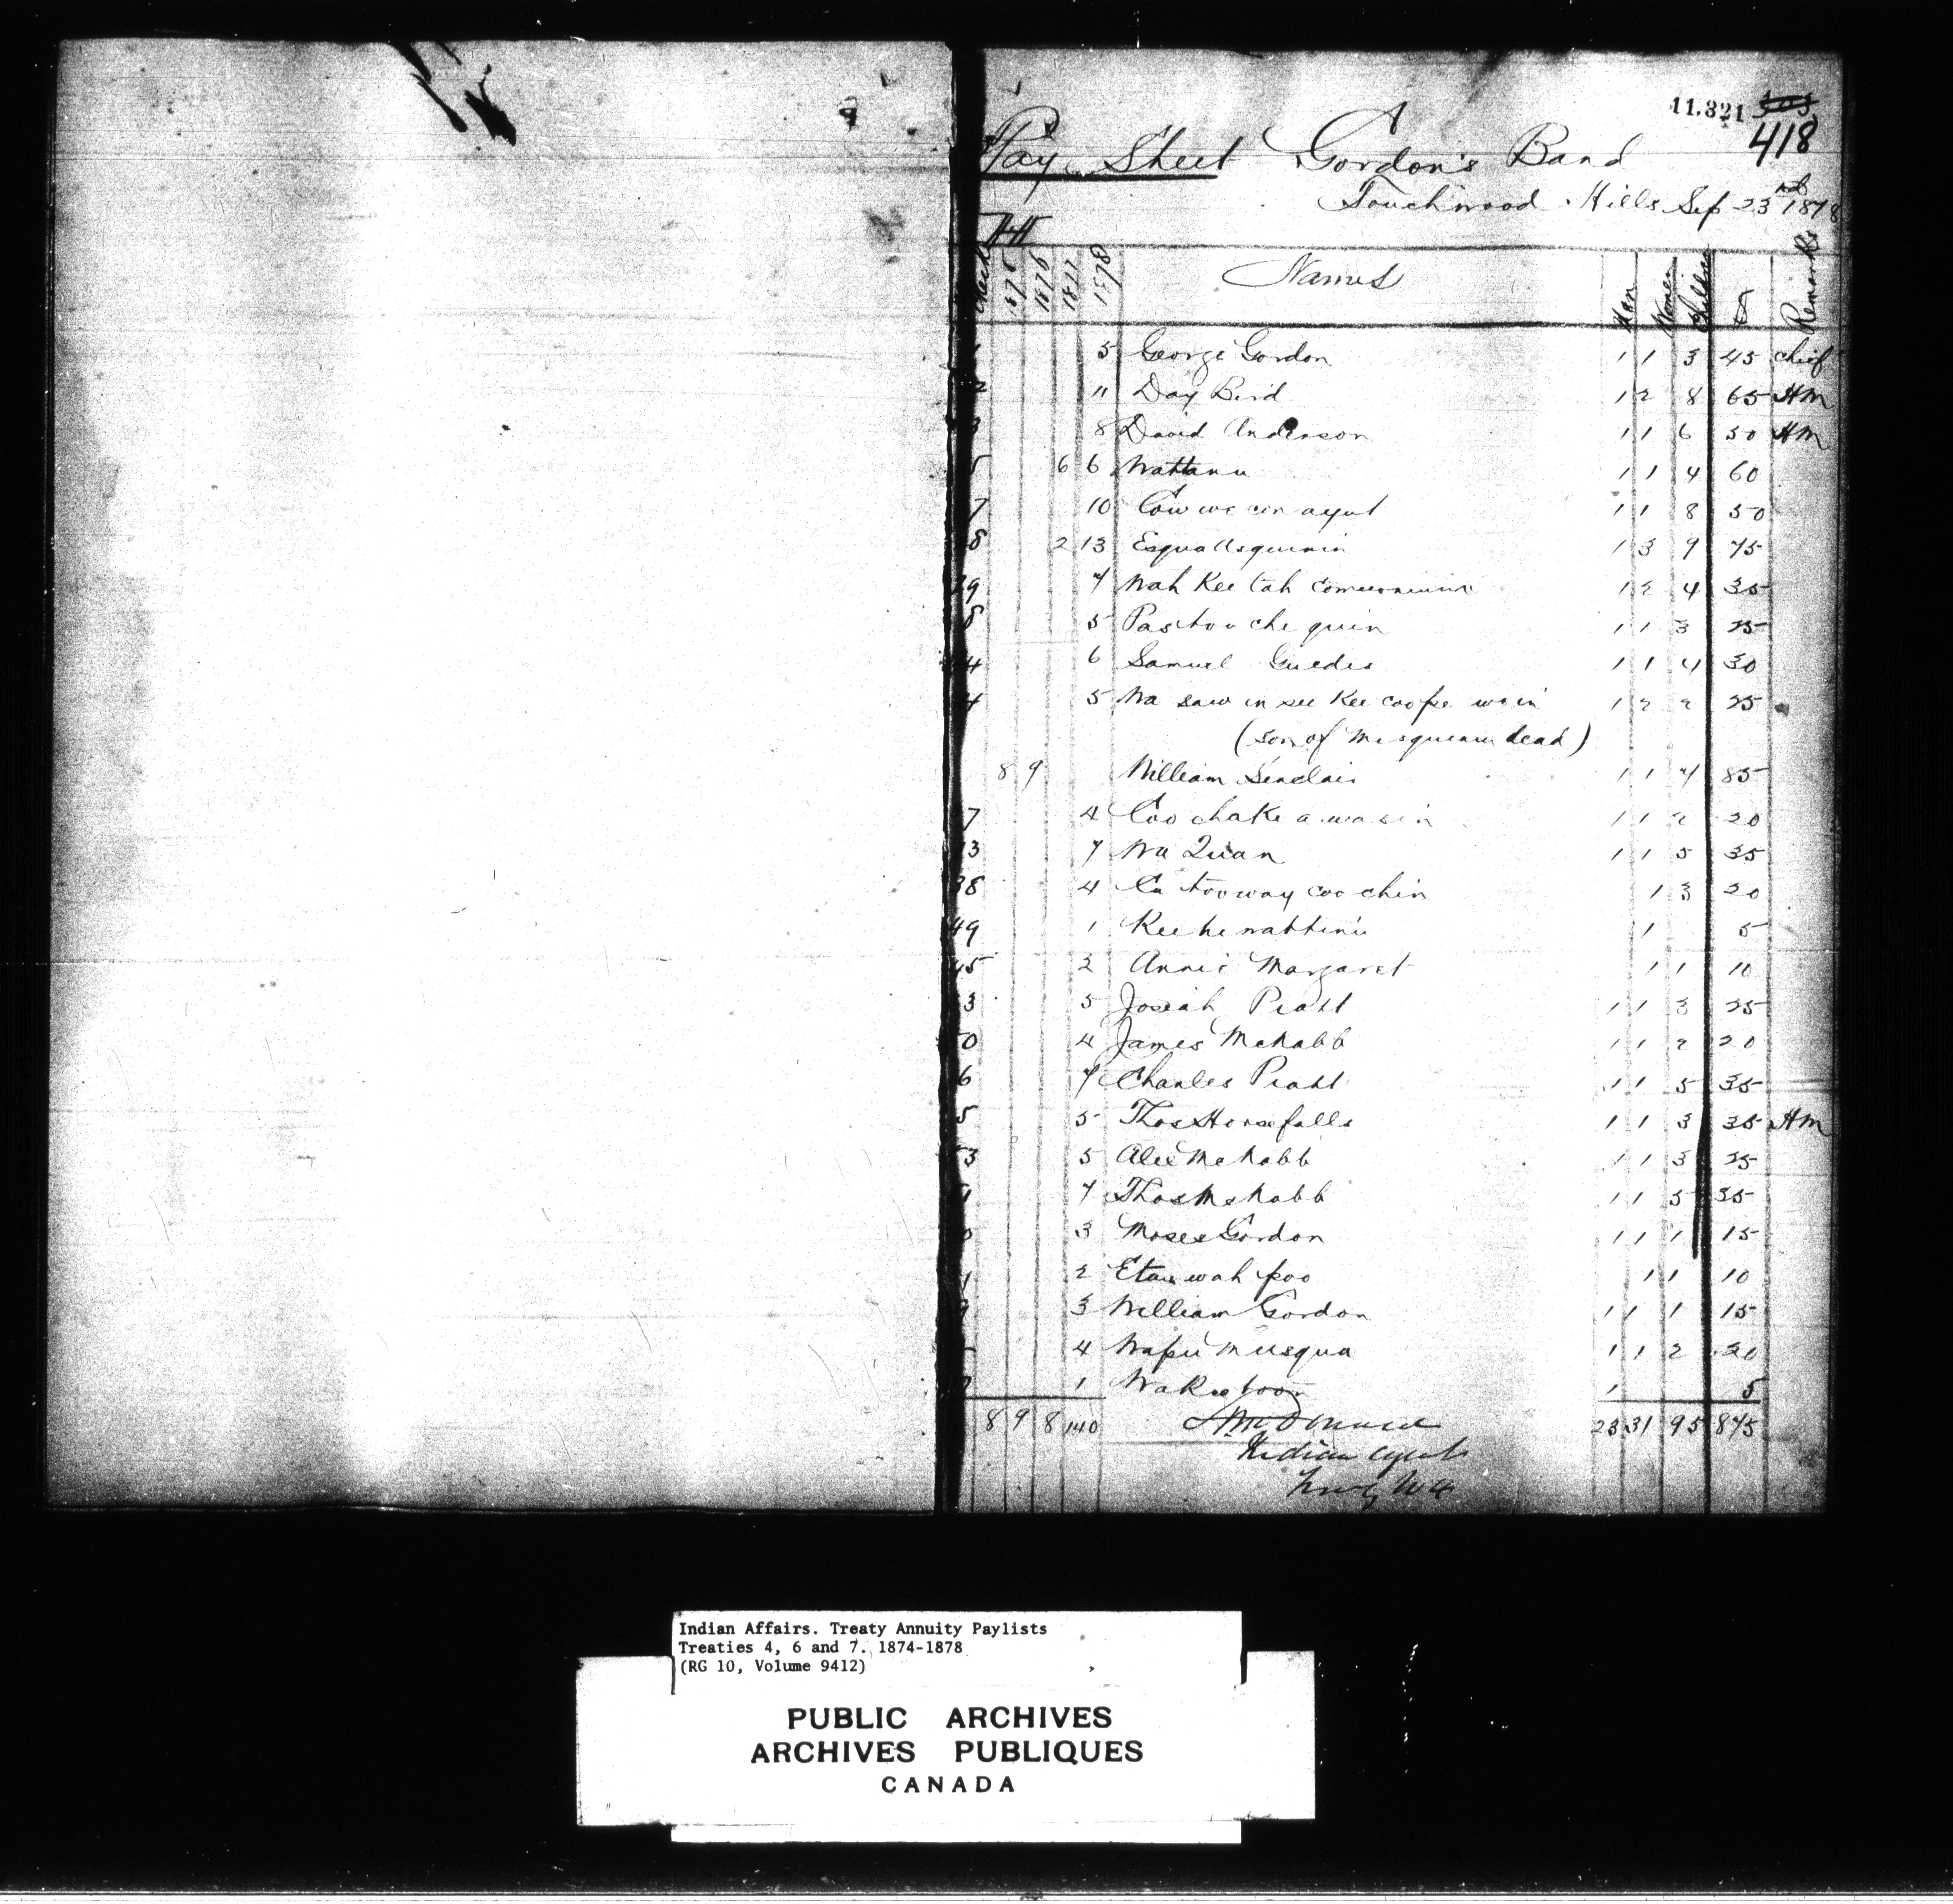 11.321 303
418
Pay Sheet Gordon's Band
Touchwood Hills Sep 23rd 1878
Checks 1875 1876 1877 1878 Names Men Women Children $ Remarks
5 George Gordon 1 1 3 45 Chief
11 Day Bird 1 2 8 65 HM
8 David Anderson 1 1 6 50 HM
5 6 6 Wattanu 1 1 4 60
7 10 Cow we can ayut 1 1 8 50
8 2 13 1 3 9 75
29 7 Wah Kee tah 1 2 4 35
8 5 Pas too che quin 1 1 3 25
4 6 Samuel 1 1 4 30
4 5 Wa saw in see Kee coope wein 1 2 2 25
(son of dead)
8 9 William Sinclair 1 1 7 85
7 4 Coo chake a wasin 1 1 2 20
13 7 Wa Quan 1 1 5 35
38 4 Ca too way coo chin 1 3 20
49 1 1 5
45 2 Annie Margaret 1 1 10
3 5 Josiah Pratt 1 1 3 25
0 4 James McNabb 1 1 2 20
6 7 Charles Pratt 1 1 5 35
5 5 Thos Horsefalls 1 1 3 35 HM
3 5 Alex McNabb 1 1 3 25
7 Thos McNabb 1 1 5 35
3 Moses Gordon 1 1 1 15
1 2 Etau wah poo 1 1 10
3 William Gordon 1 1 1 15
4 Wapee Musqua 1 1 2 20
1 Wakee toon 1 5
8 9 8 140 A McDonald 23 31 95 875
Indian Agent
Indian Affairs. Treaty Annuity Paylists
Treaties 4, 6 and 7. 1874-1878
(RG 10, Volume 9412)
PUBLIC ARCHIVES
ARCHIVES PUBLIQUES
CANADA